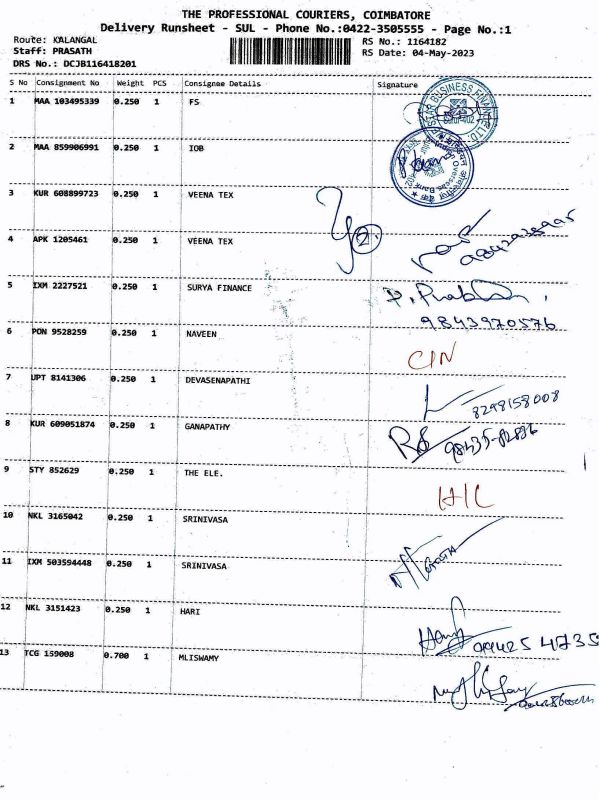 THE PROFESSIONAL COURIERS, COIMBATORE
Delivery Runsheet - SUL - Phone No.:0422-3505555 - Page No.:1
Route: KALANGAL RS No.: 1164182
Staff: PRASATH RS Date: 04-May-2023
DRS No.: DCJB116418201
S No Consignment No Weight PCS Consignee Details Signature
1 MAA 103495339 0.250 1 FS
STAR BUSINESS FINANCE LTD.
2 MAA 859906991 0.250 1 IOB
Indian Overseas Bank
3 KUR 608899723 0.250 1 VEENA TEX
2
4 APK 1205461 0.250 1 VEENA TEX
5 IXM 2227521 0.250 1 SURYA FINANCE
9843970576
6 PON 9528259 0.250 1 NAVEEN
CIN
7 UPT 8141306 0.250 1 DEVASENAPATHI
8298158008
8 KUR 609051874 0.250 1 GANAPATHY
9 STY 852629 0.250 1 THE ELE.
H/C
10 NKL 3165042 0.250 1 SRINIVASA
11 IXM 503594448 0.250 1 SRINIVASA
12 NKL 3151423 0.250 1 HARI
13 TCG 159008 0.700 1 MLISWAMY